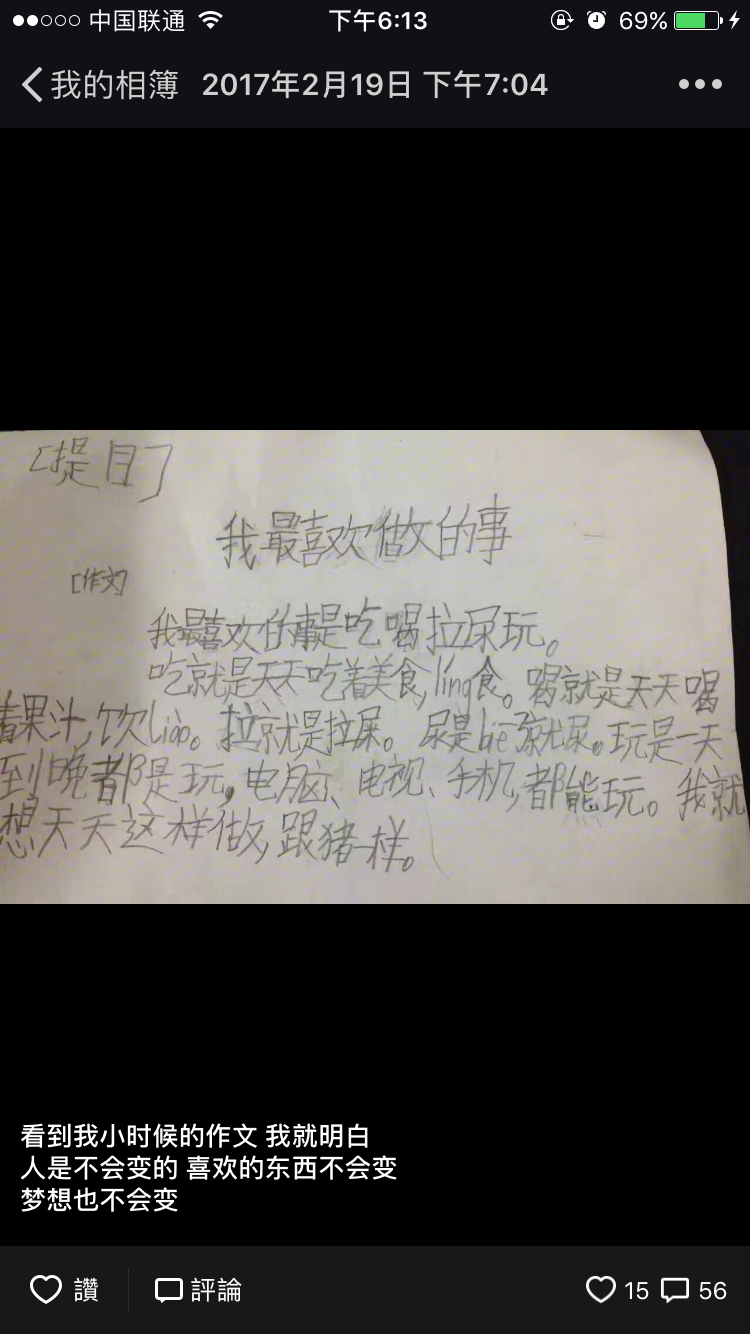 中国联通 下午6:13 69%
我的相簿 2017年2月19日 下午7:04
[提目]
我最喜欢做的事
[作文]
我最喜欢的事是吃喝拉尿玩。
吃就是天天吃着美食,líng食。喝就是天天喝
着果汁,饮liào。拉就是拉屎。尿是biē了就尿。玩是一天
到晚都是玩,电脑、电视、手机,都能玩。我就
想天天这样做,跟猪一样。
看到我小时候的作文 我就明白
人是不会变的 喜欢的东西不会变
梦想也不会变
讚 評論 15 56